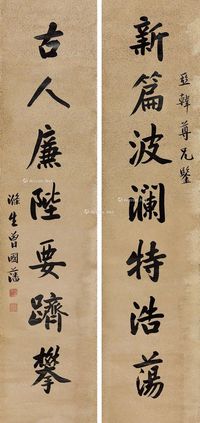 亚韓尊兄鑒
新篇波澜特浩蕩
古人廉陛要躋攀
滌生曾國藩